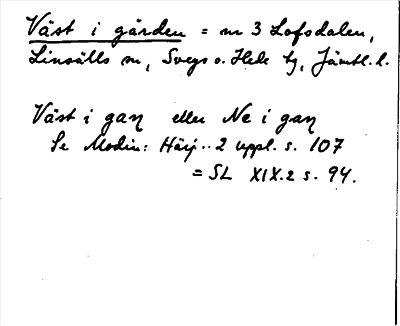 Väst i gården = nr 3 Lofsdalen,
Linsälls sn, Svegs o. Hede tg, Jämtl. l.
Väst i gaɳ eller Ne i gaɳ
Se Modin: Härj.. 2 uppl. s. 107
= SL XIX.2 s. 94.